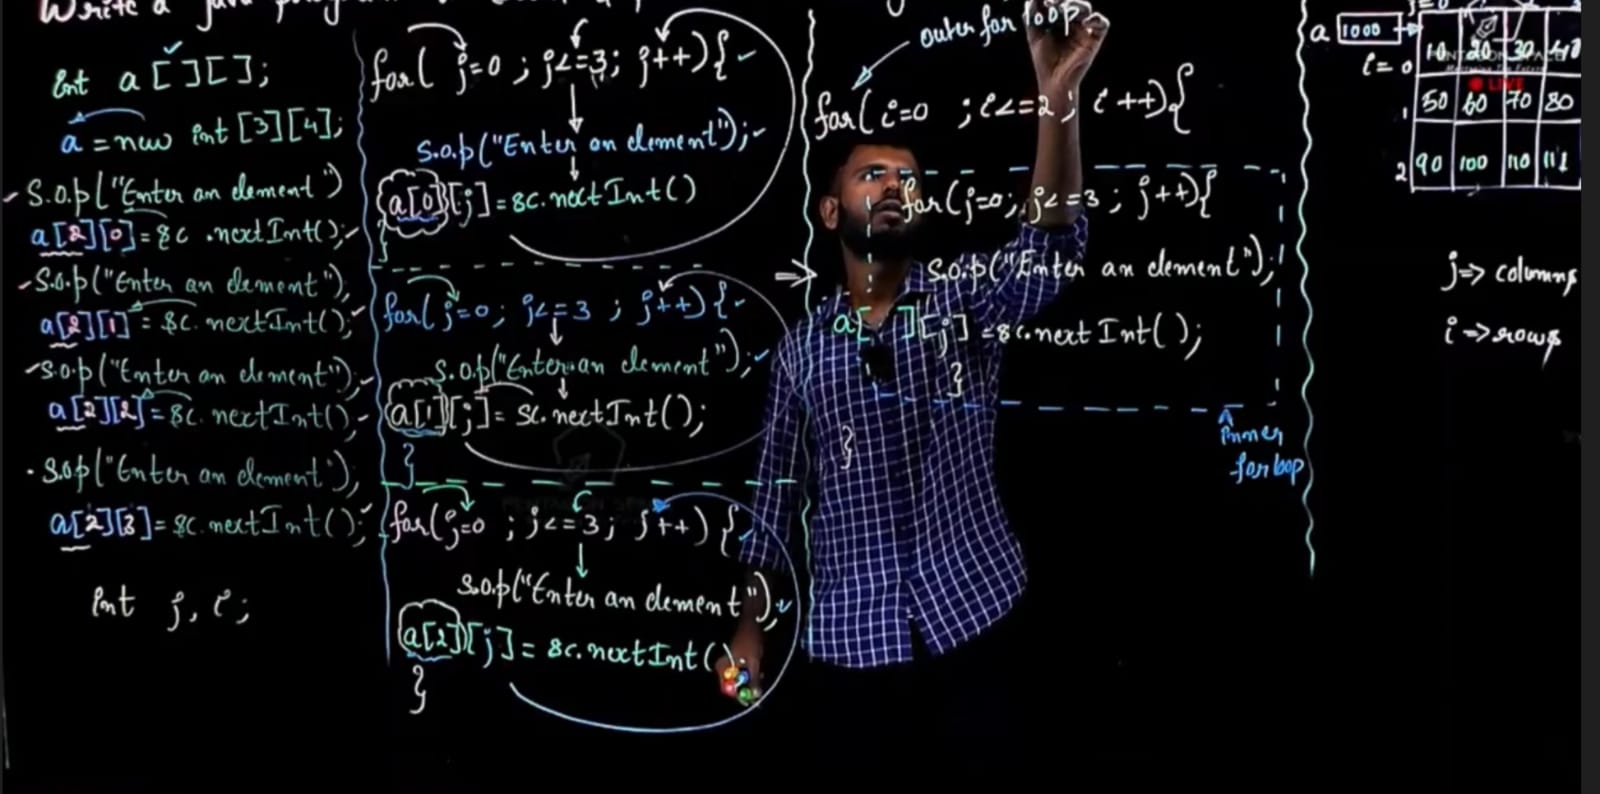 Write a java program
int a[][];
a = new int [3][4];
S.o.p("Enter an element")
a[2][0] = sc.nextInt();
S.o.p("Enter an element");
a[2][1] = sc.nextInt();
S.o.p("Enter an element");
a[2][2] = sc.nextInt();
S.o.p("Enter an element");
a[2][3] = sc.nextInt();
int j, i;
for( j=0 ; j<=3; j++){
S.o.p("Enter an element");
a[0][j] = sc.nextInt()
}
for( j=0; j<=3 ; j++){
S.o.p("Enter an element");
a[1][j] = sc.nextInt();
}
for( j=0 ; j<=3; j++) {
S.o.p("Enter an element");
a[2][j] = sc.nextInt();
}
outer for loop
for(i=0 ; i<=2 ; i++){
for(j=0; j<=3 ; j++){
S.o.p("Enter an element");
a[ ][j] = sc.nextInt();
}
}
inner
for loop
a 1000
i= 0 10 20 30 40
LIVE
1 50 60 70 80
2 90 100 110
j=> columns
i=>rows